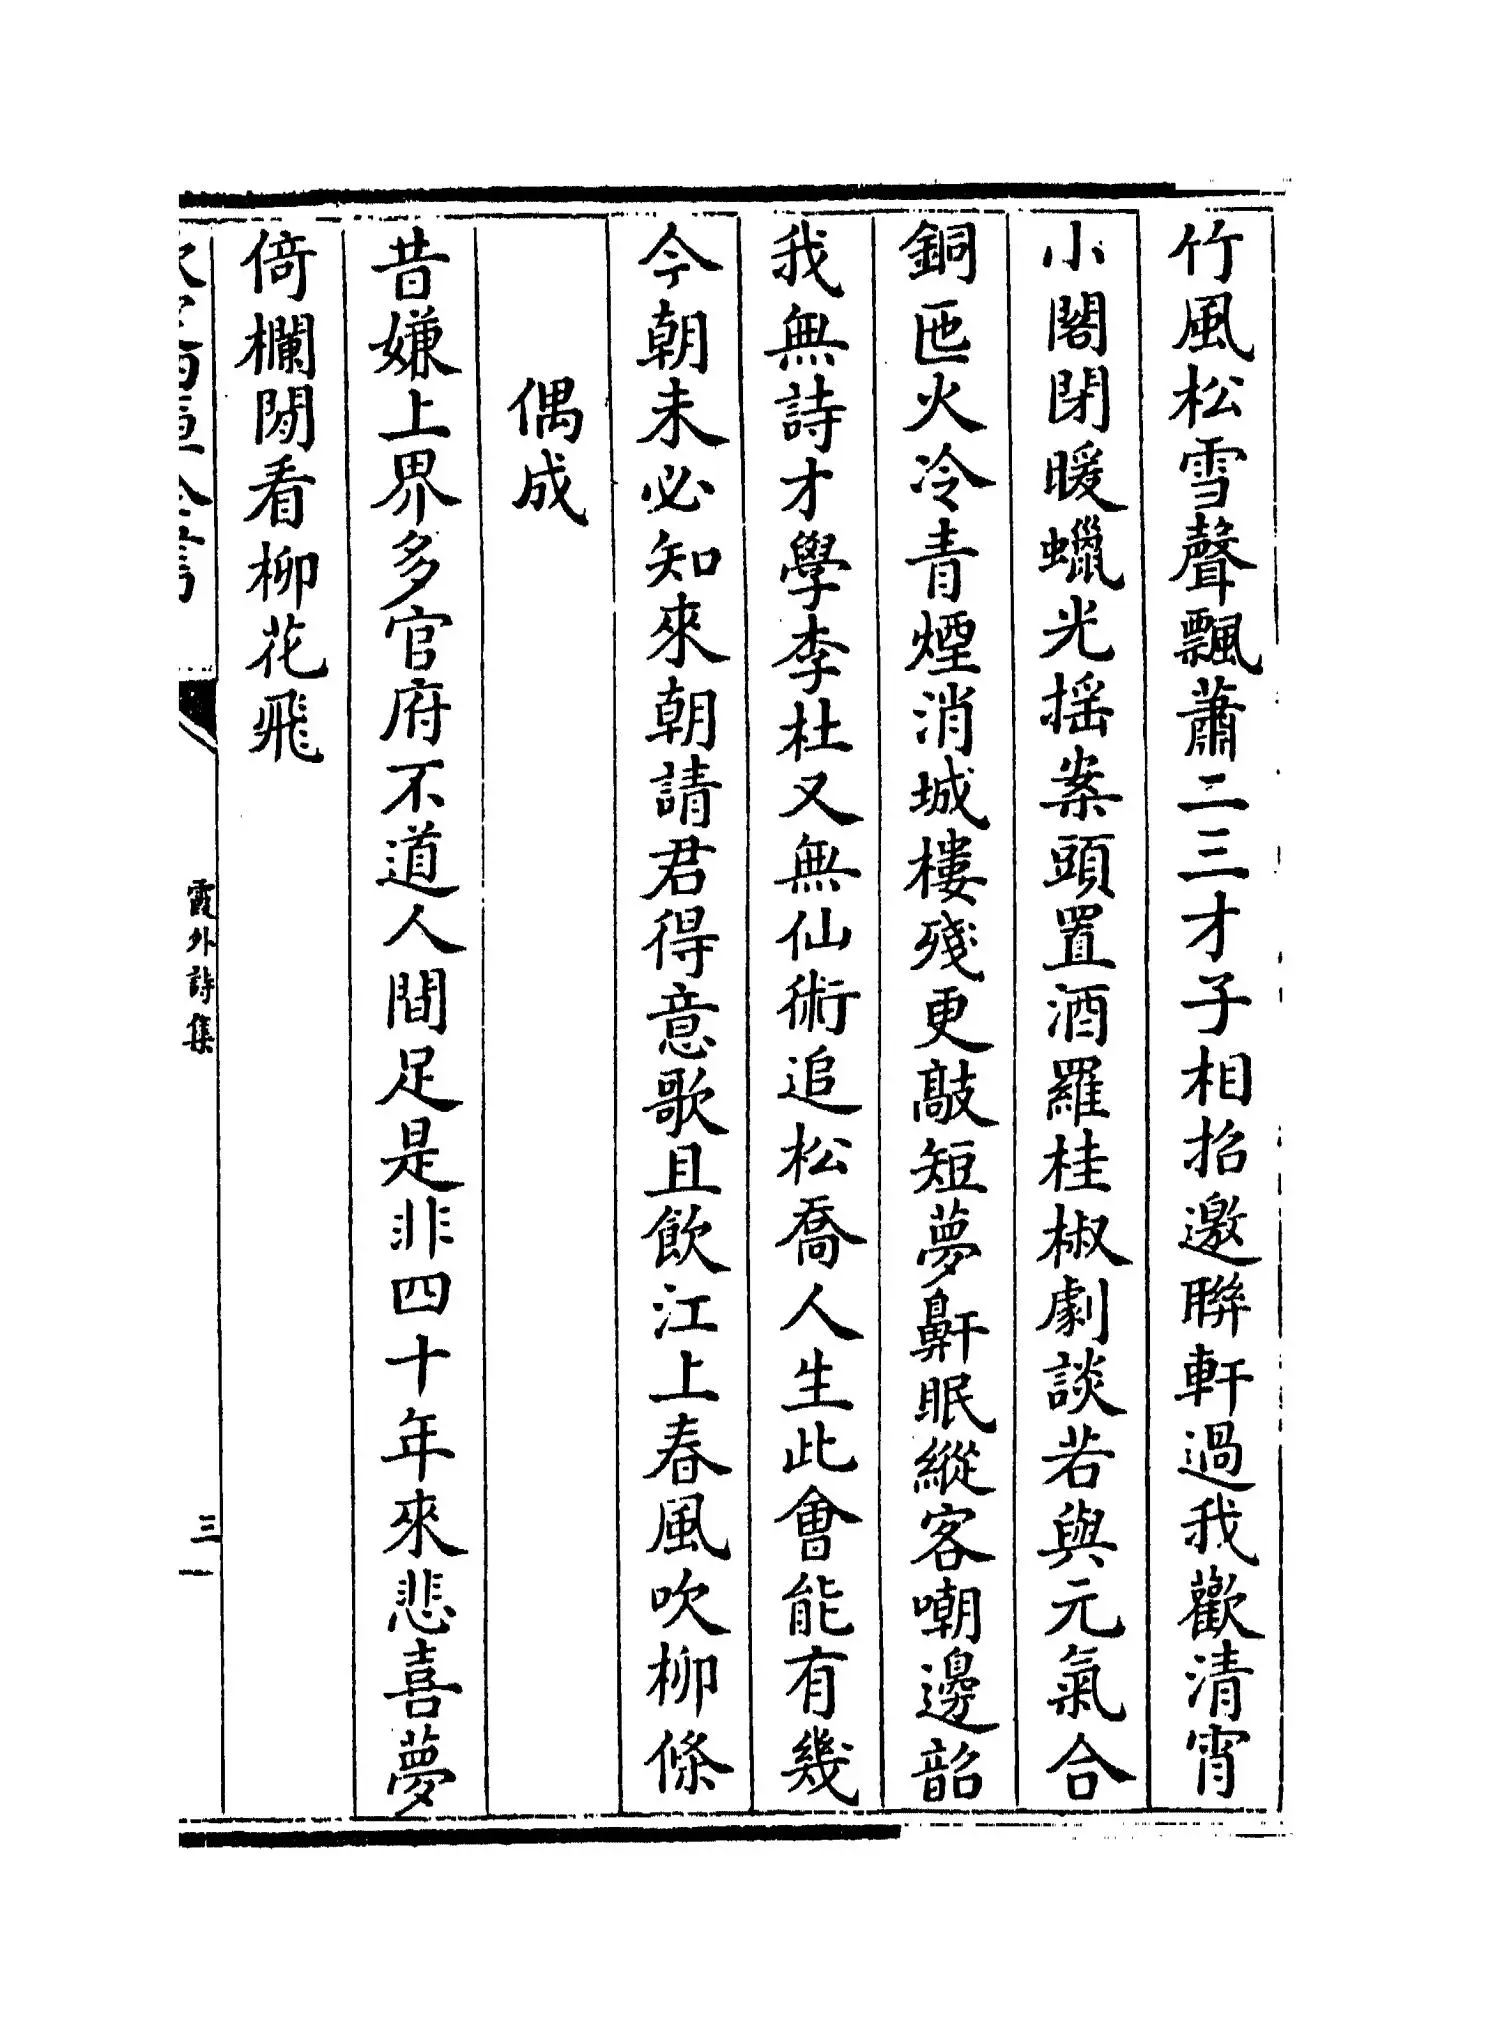 竹風松雪聲飄蕭二三才子相招邀聯軒過我歡清宵
小閣閉暖蠟光揺案頭置酒羅桂椒劇談若與元氣合
銅匜火冷青煙消城樓殘更敲短夢鼾眠縱客嘲邊韶
我無詩才學李杜又無仙術追松喬人生此㑹能有幾
今朝未必知來朝請君得意歌且飲江上春風吹柳條
偶成
昔嫌上界多官府不道人間足是非四十年來悲喜夢
倚欄閒看柳花飛
霞外詩集
三